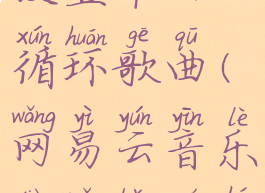 xún huán gē qū
循环歌曲(
wǎng yì yún yīn lè
网易云音乐